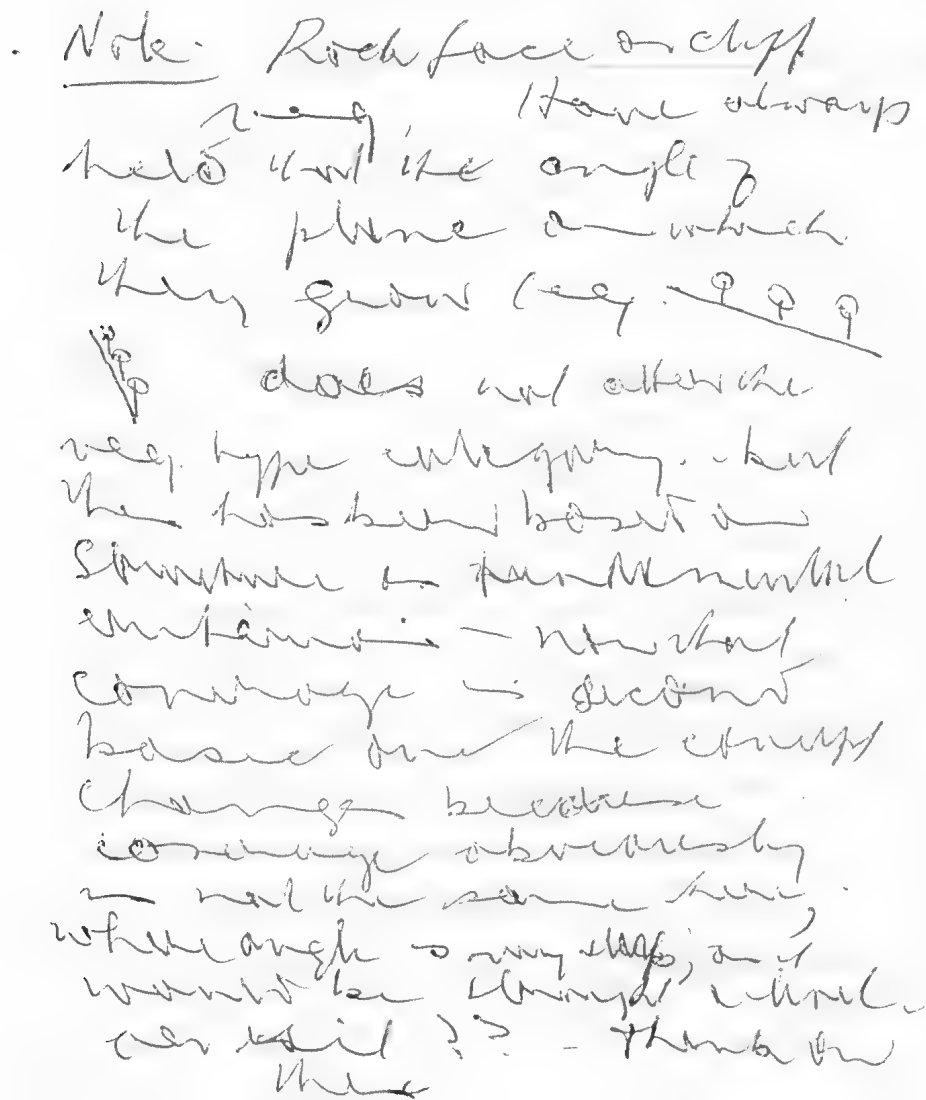 Note. Rock face or cliff
veg. Have always
held that the angle of
the plane on which
they grow (eg.
does not alter the
veg. type category. - but
this has been based on
structure as fundamental
criterion - now that
coverage is second
basic one the concept
changes because
coverage obviously
is not the same here,
where angle is very steep, as it
would be
on soil ?? - Think on
this